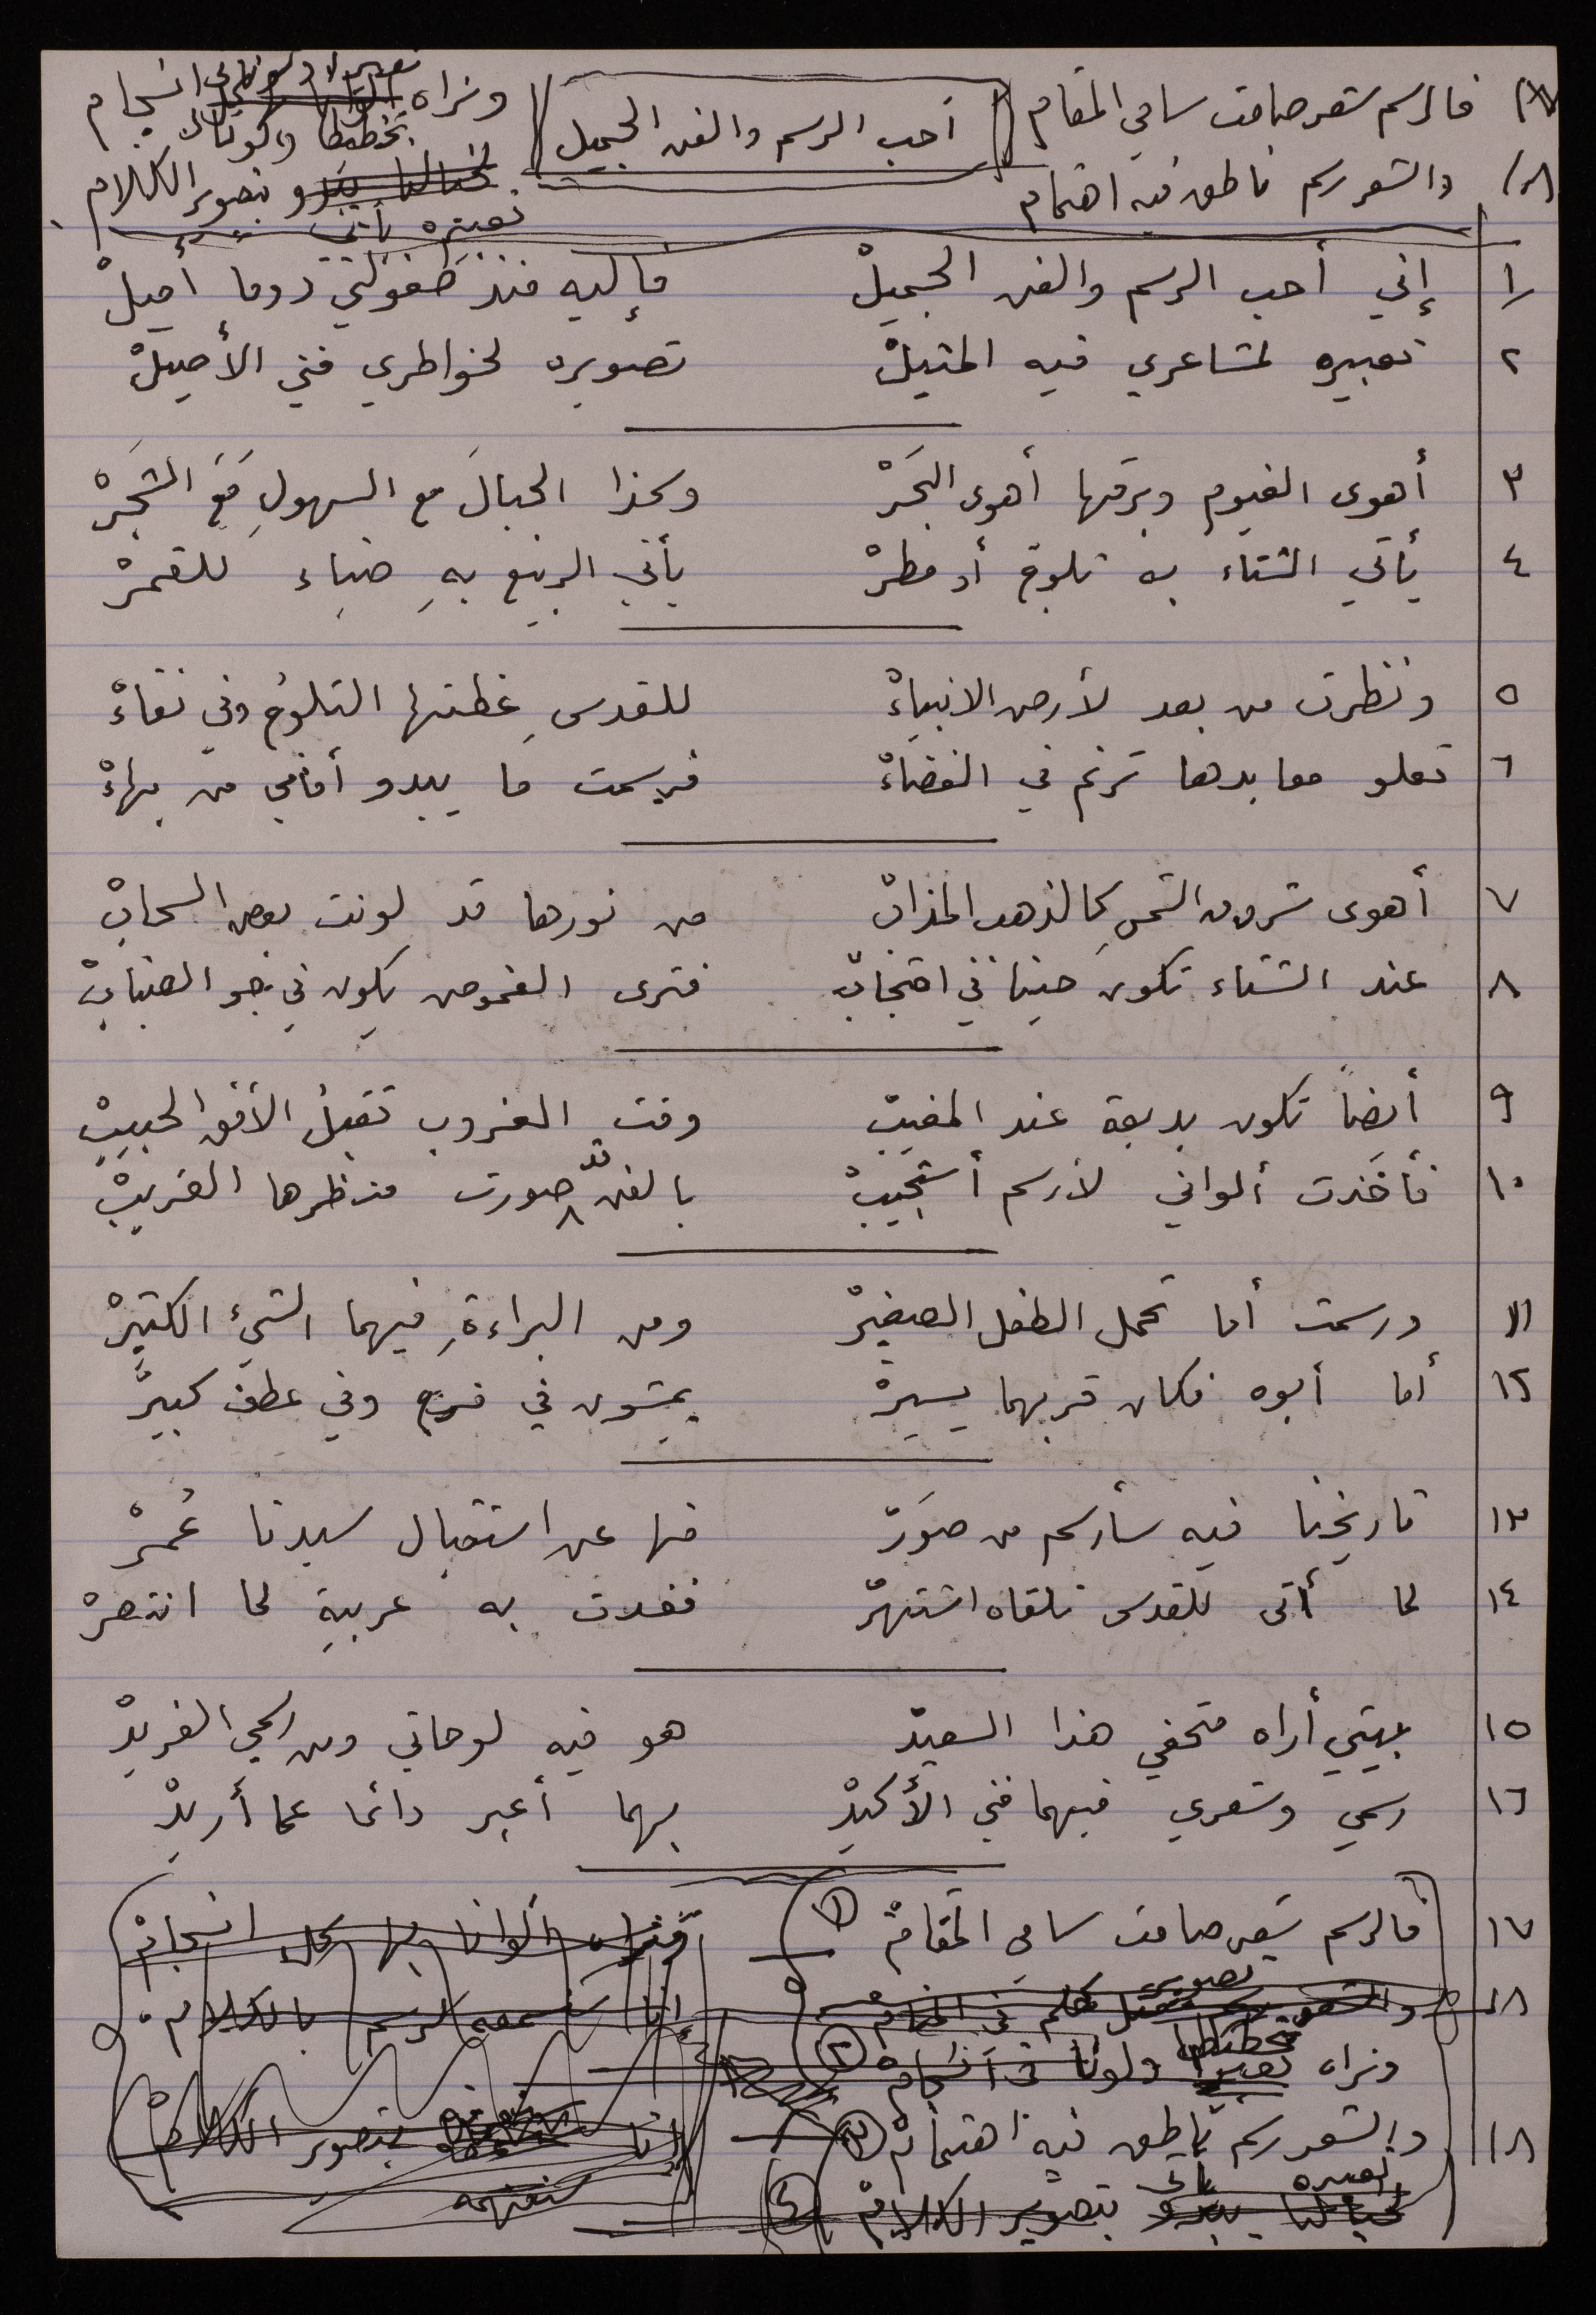 ١٧/ فالرسم شعر صامت سامي المقام
أحب الرسم والفن الجميل
ونراه تخطيطا ولونا في انسجام
١٨/ والشعر رسم ناطق فيه اهتمام
تعبيره يأتي بتصوير الكلام
١/ إني أحب الرسم والفن الجميلْ فإليه منذ طفولتي دوما أميلْ
٢ تعبيره لمشاعري فيه المثيلْ تصويره لخواطري فني الأصيلْ
٣ أهوى الغيوم وبرقها أهوى البَحَرْ وكذا الجبالَ مع السهولِ مَعَ الشجَرْ
٤ يأتي الشتاء به ثلوج أو مطرْ يأتي الربيع بهِ ضياء للقمرْ
٥ ونظرت من بعد لأرض الانبياءْ للقدسِ غطتها الثلوجُ وفي نقاءْ
٦ تعلو معابدها ترنم في الفضاءْ فرسمت ما يبدو أمامي من بهاءْ
٧ أهوى شروق الشمسِ كالذهب المذابْ من نورها قد لونت بعض السحابْ
٨ عند الشتاء تكون حينا في احتجابْ فترى الغموض يكون في جو الضبابْ
٩ أيضاً تكون بديعة عند المغيبْ وقت الغروب تقبلُ الأفق الحبيبْ
١٠ فأخذت ألواني لأرسم أستجيبْ بالفن قد صورت منظرها الغريبْ
١١ ورسمت أما تحمل الطفل الصغيرْ ومن البراءةِ فيهما الشيءُ الكثيرْ
١٢ أما أبوه فكان قربهما يسيرْ يمشون في فرح وفي عطف كبيرْ
١٣ تاريخنا فيه سأرسم من صوَرْ منها عن استقبال سيدنا عُمرْ
١٤ لما أتى للقدس تلقاه اشتهرْ فغدت به عربيةِ لما انتصرْ
١٥ بيتي أراه متحفي هذا السعيدْ هو فيه لوحاتي ومن رسمي الفريدْ
١٦ رسمي وشعري فيهما فني الأكيدْ بهما أعبر دائما عما أريدْ
١٧ فالرسم شعر صامت سامي المقامْ (١) ألوانا بها كل انسجامْ
١٨/ والشعر رسم في بالكلام
ونراه تخطيطا ولونا في انسجامْ (٢)
١٨/ والشعر رسم ناطق فيه اهتمامْ (٣) بتصوير الكلامْ
تعبيره يأتي بتصوير الكلامْ (٤)